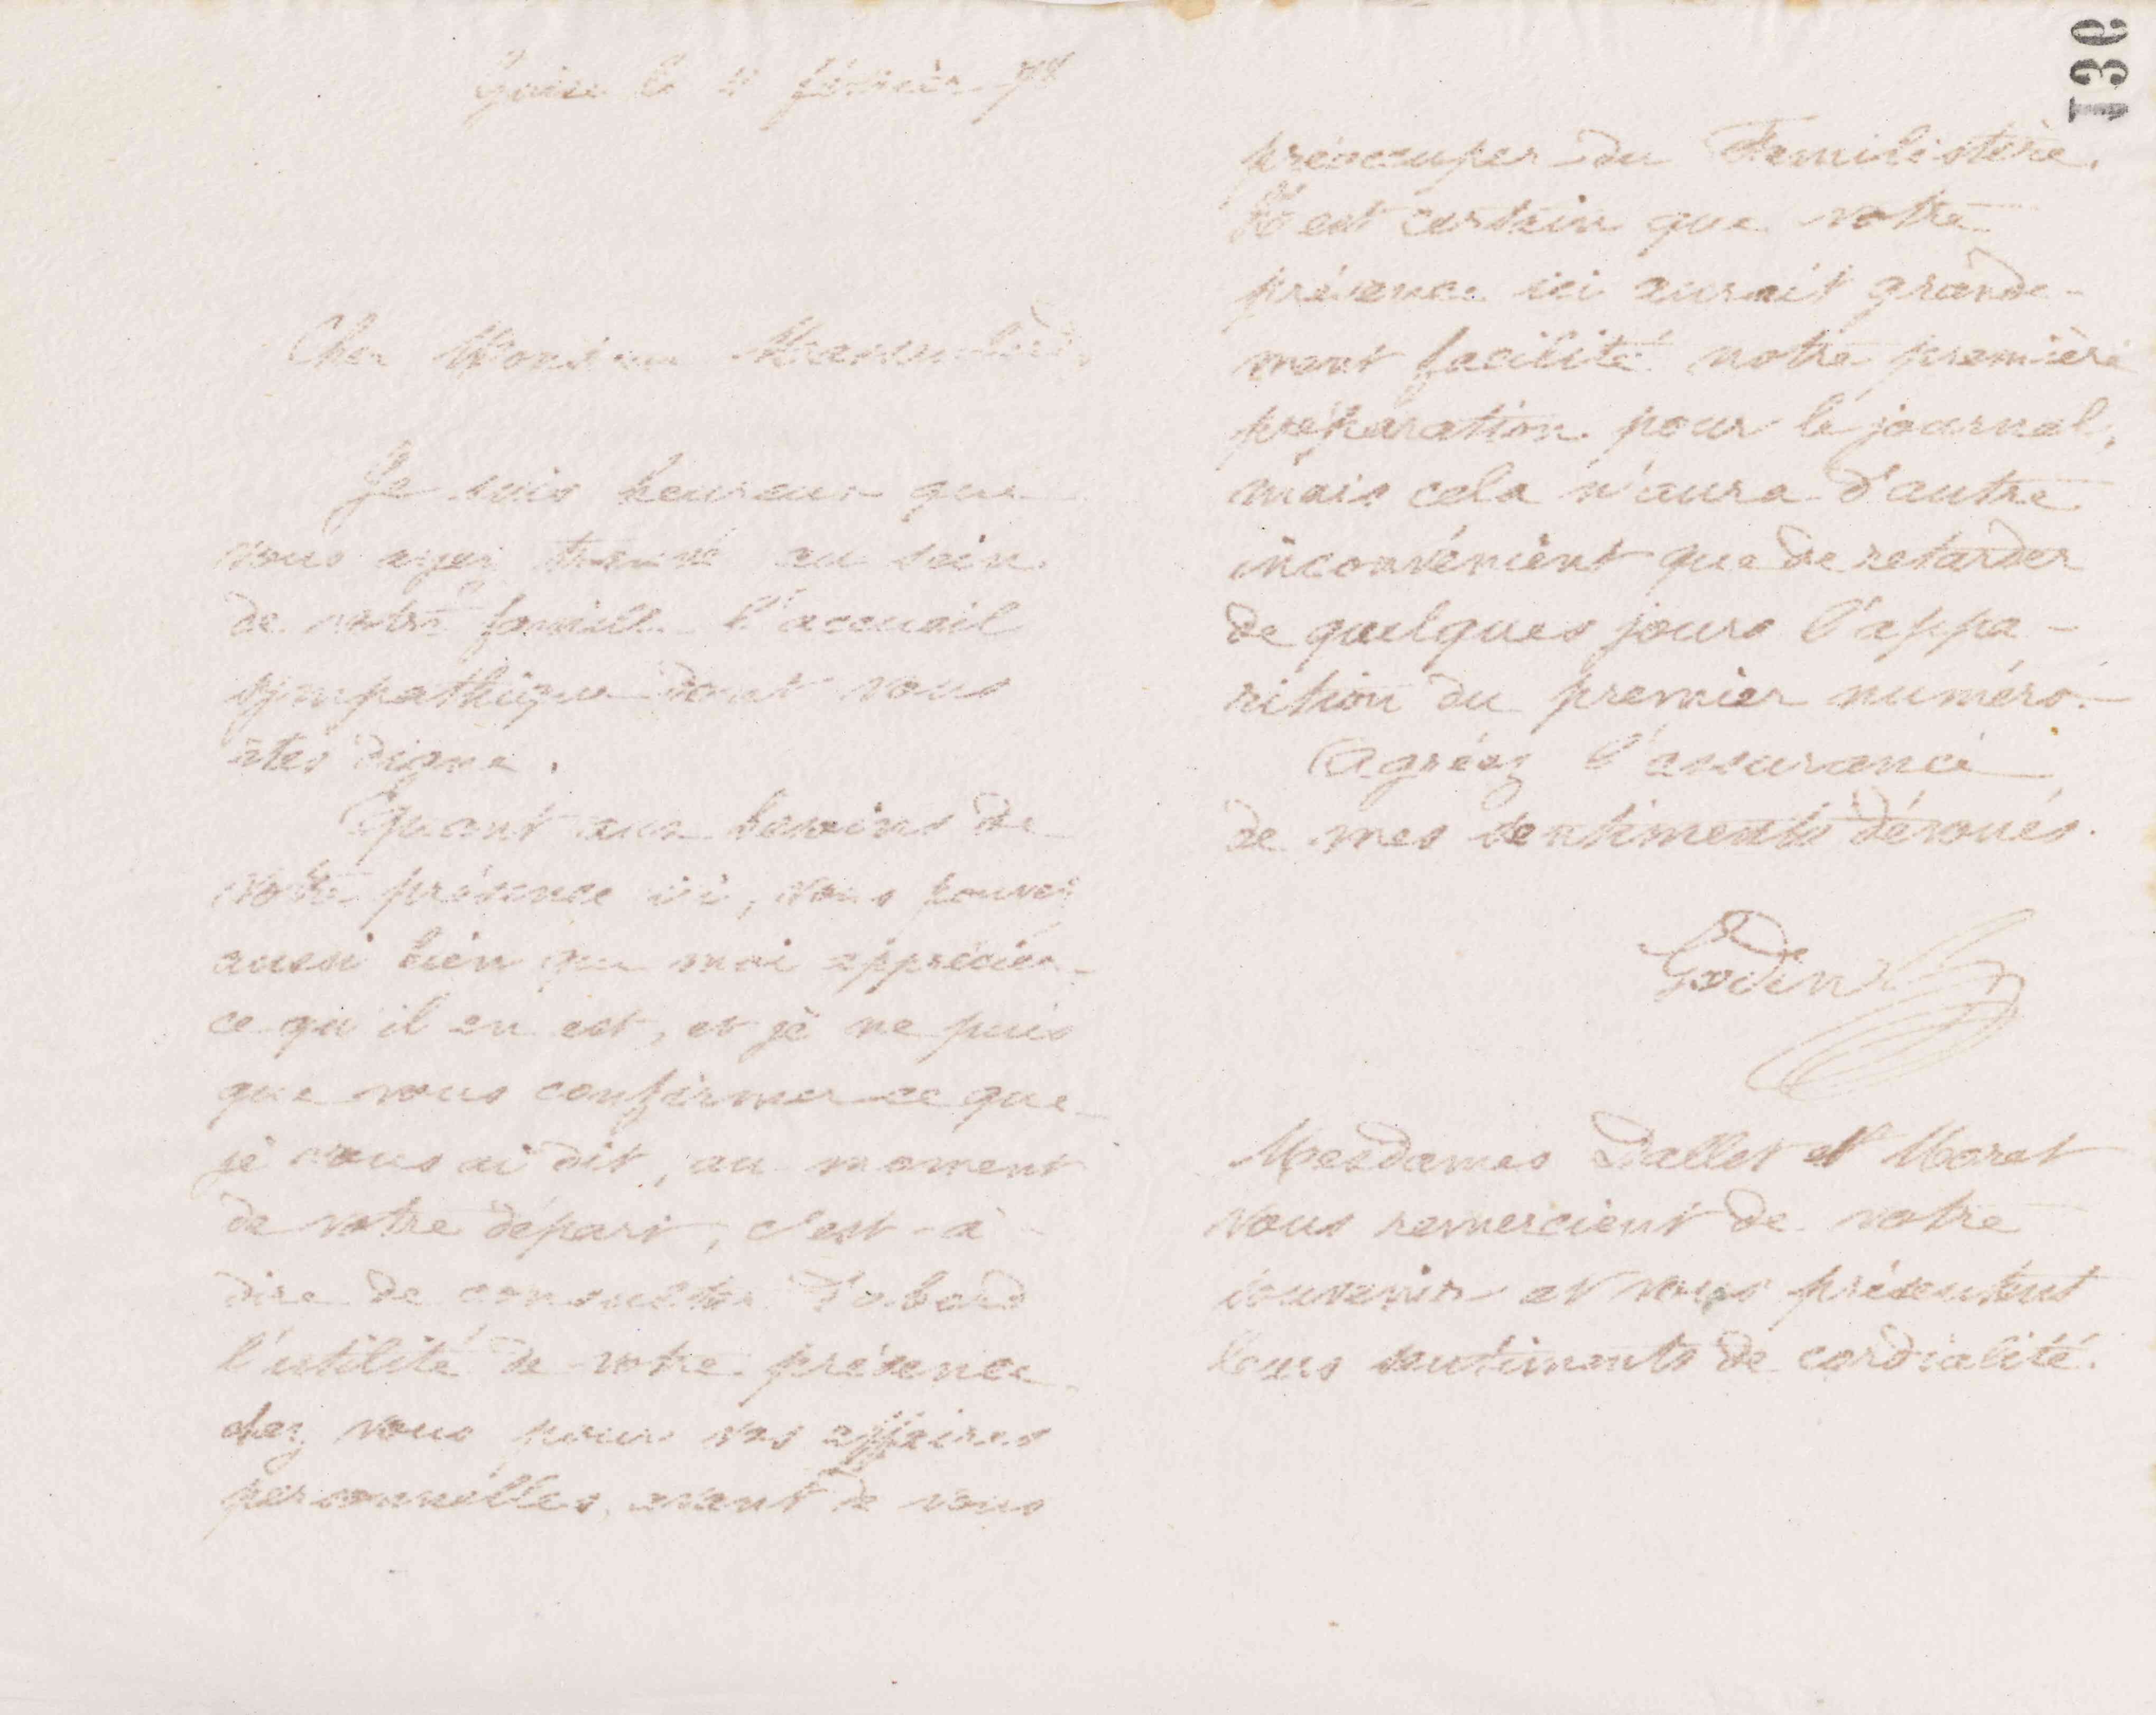 Guise le 4 février 78
Cher Monsieur Massoulard,
Je suis heureux que
vous ayez trouvé au sein
de votre famille l'accueil
sympathique dont vous
êtes digne.
Quant aux besoins de
votre présence ici, vous pouvez
aussi bien que moi apprécier
ce qu'il en est, et je ne puis
que vous confirmer ce que
je vous ai dit, au moment
de votre départ, c'est-à-
dire de consulter d'abord
l'utilité de votre présence
chez vous pour vos affaires
personnelles, avant de vous
préoccuper du Familistère.
Il est certain que votre
présence ici aurait grande-
ment facilité notre première
préparation pour le journal,
mais cela n'aura d'autre
inconvénient que de retarder
de quelques jours l'appa-
rition du premier numéro.
Agréez l'assurance
de mes sentiments dévoués.
Godin
Mesdames Dallet et Moret
vous remercient de votre
souvenir et vous présentent
leurs sentiments de cordialité.
136